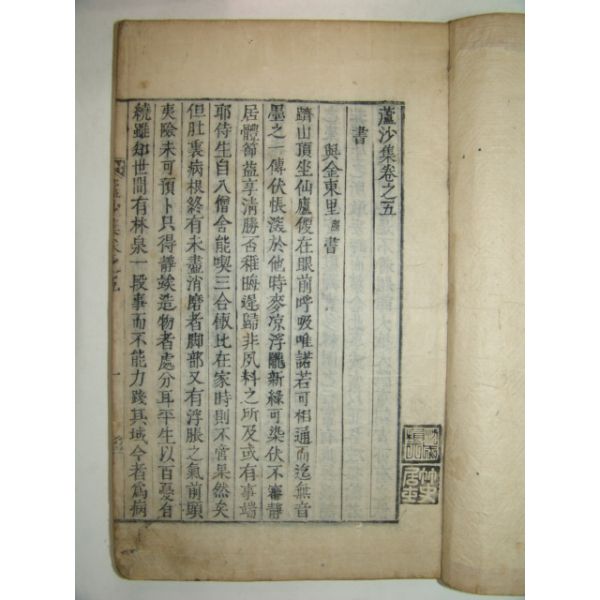 蘆沙集卷之五
書
與金東里書
躋山頂坐仙廬優在眼前呼吸唯諾若可相通而迄無音
墨之一傳伏悵滾於他時麥凉浮隴新綠可染伏不審靜
居體節益享淸勝否稚晦遲歸非夙料之所及或有事端
耶侍生自入僧舍能喫三合飯比在家時則不啻果然矣
但肚裏病根終有未盡消磨者脚部又有浮脹之氣前頭
夷險未可預卜只得靜竢造物者處分耳平生以百憂自
繞雖知世間有林泉一段事而不能力踐其域今者爲病
蘆沙集卷之五
一